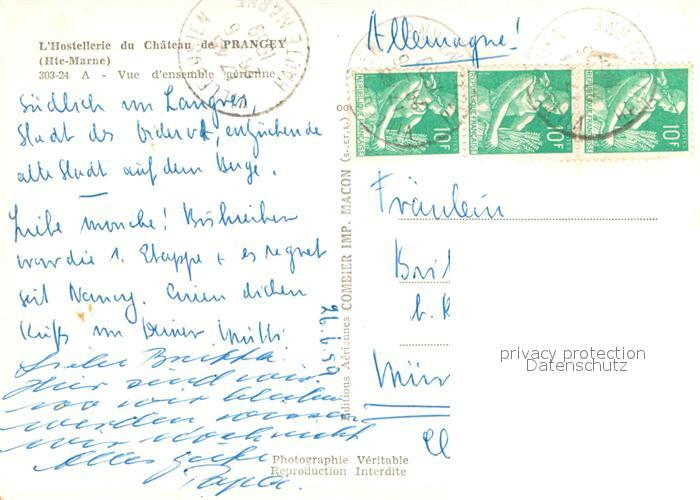 L'Hostellerie du Château de PRANGEY
(Hte-Marne)
303-24 A - Vue d'ensemble aérienne
Südlich von Langres,
Stadt des Diderot, entzückende
alte Stadt auf dem Berge.
Liebe
war die 1. Etappe + es regnet
seit Nancy. Einen dicken
Kuß von Deiner Mutti
26.6.59
Liebe
Hier sind wir.
wo wir bleiben
werden wissen
wir noch nicht
Alles Gute
Papa.
Editions Aériennes COMBIER IMP. MACON (S.-et-L.)
Photographie Véritable
Reproduction Interdite
Allemagne!
HAUTE MARNE
REPUBLIQUE FRANÇAISE
10F
REPUBLIQUE FRANÇAISE
10F
REPUBLIQUE FRANÇAISE
10F
Fräulein
privacy protection
Datenschutz